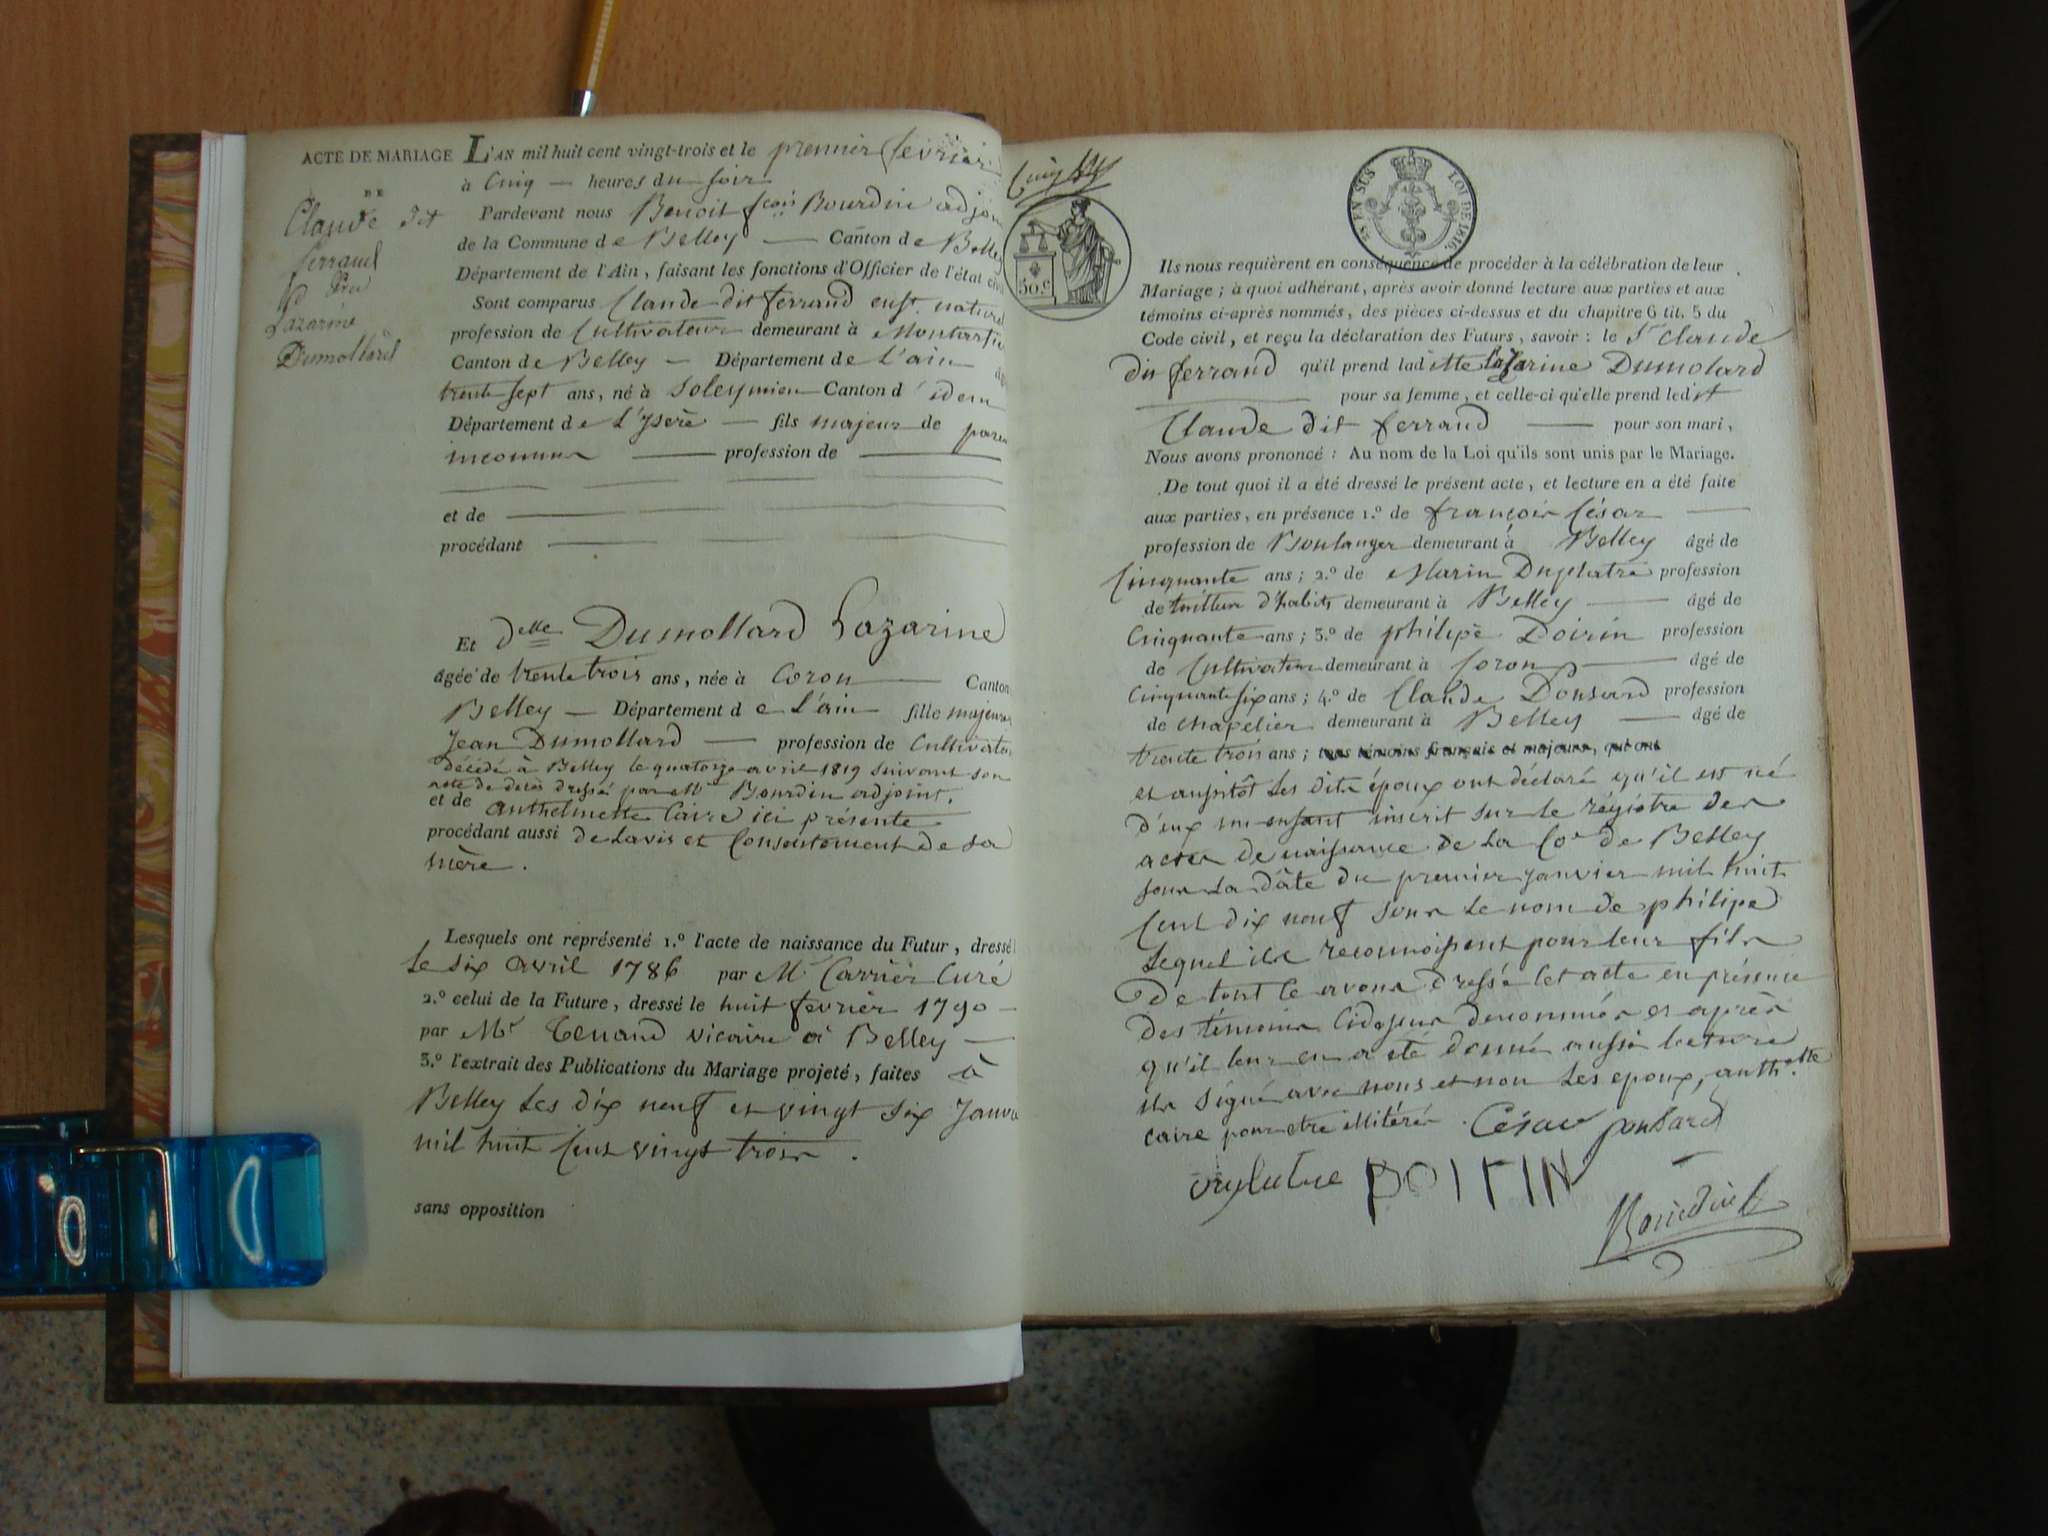 ACTE DE MARIAGE
DE
Claude dit
ferrand
Lazarine
Dumollard
L'AN mil huit cent vingt-trois et le premier fevrier
à Cinq — heures du soir
Pardevant nous Benoit fçois Bourdin adjoin
de la Commune de Belley — Canton de Belley
Département de l'Ain, faisant les fonctions d'Officier de l'état civ
Sont comparus Claude dit ferrand enft. naturel
profession de Cultivateur demeurant à
Canton de Belley — Département de L'ain âg
trente sept ans, né à Soleymieu Canton d' idem
Département de L'ysere — fils majeur de paren
inconnus — profession de —
et de —
procédant —
Et delle Dumollard Lazarine
âgée de trente trois ans, née à Coron — Canton
Belley — Département de L'ain fille majeure
Jean Dumollard — profession de Cultivateu
décédé à Belley le quatorze avril 1819 suivant son
acte de décès dressé par Mr Bourdin adjoint,
et de anthelmette Caire ici présente
procédant aussi de Lavis et Consentement de sa
mère.
Lesquels ont représenté 1.º l'acte de naissance du Futur, dressé
Le six avril 1786 par Mr Carrier Curé
2.º celui de la Future, dressé le huit fevrier 1790 —
par Mr Tenand vicaire à Belley —
3.º l'extrait des Publications du Mariage projeté, faites à
Belley Les dix neuf et vingt six Janvi
mil huit Cent vingt trois.
sans opposition
Cinq
50 c
25 EN SUS LOI DE 1816.
Ils nous requièrent en conséquence de procéder à la célébration de leur
Mariage; à quoi adhérant, après avoir donné lecture aux parties et aux
témoins ci-après nommés, des pièces ci-dessus et du chapitre 6 tit. 5 du
Code civil, et reçu la déclaration des Futurs, savoir: le Sr Claude
dit ferrand qu'il prend ladite Lazarine Dumolard
— pour sa femme, et celle-ci qu'elle prend ledit
Claude dit ferrand — pour son mari,
Nous avons prononcé: Au nom de la Loi qu'ils sont unis par le Mariage.
De tout quoi il a été dressé le présent acte, et lecture en a été faite
aux parties, en présence 1.º de françois César —
profession de Boulanger demeurant à Belley âgé de
Cinquante ans; 2.º de Marin Duplatre profession
de tailleur d'habits demeurant à Belley — âgé de
Cinquante ans; 3.º de philipe Doirin profession
de Cultivateur demeurant à Coron — âgé de
Cinquante six ans; 4.º de Claude Ponsard profession
de chapelier demeurant à Belley — âgé de
trente trois ans; tous témoins français et majeurs, qui ont
et aussitôt Les dits époux ont déclaré qu'il est né
d'eux un enfant inscrit sur le régistre des
actes de naissance de La Cne de Belley
sous La dâte du premier janvier mil huit
Cent dix neuf sous Le nom de philipe
Lequel ils reconnoissent pour leur fils
De tout ce avons dressé Cet acte en présence
des témoins Cidessus denommés et après
qu'il leur en a été donné aussi lecture
ils signé avec nous et non Les epoux, anthette
caire pour etre illitérés. César ponsard
duplatre POIRIN
Bourdin